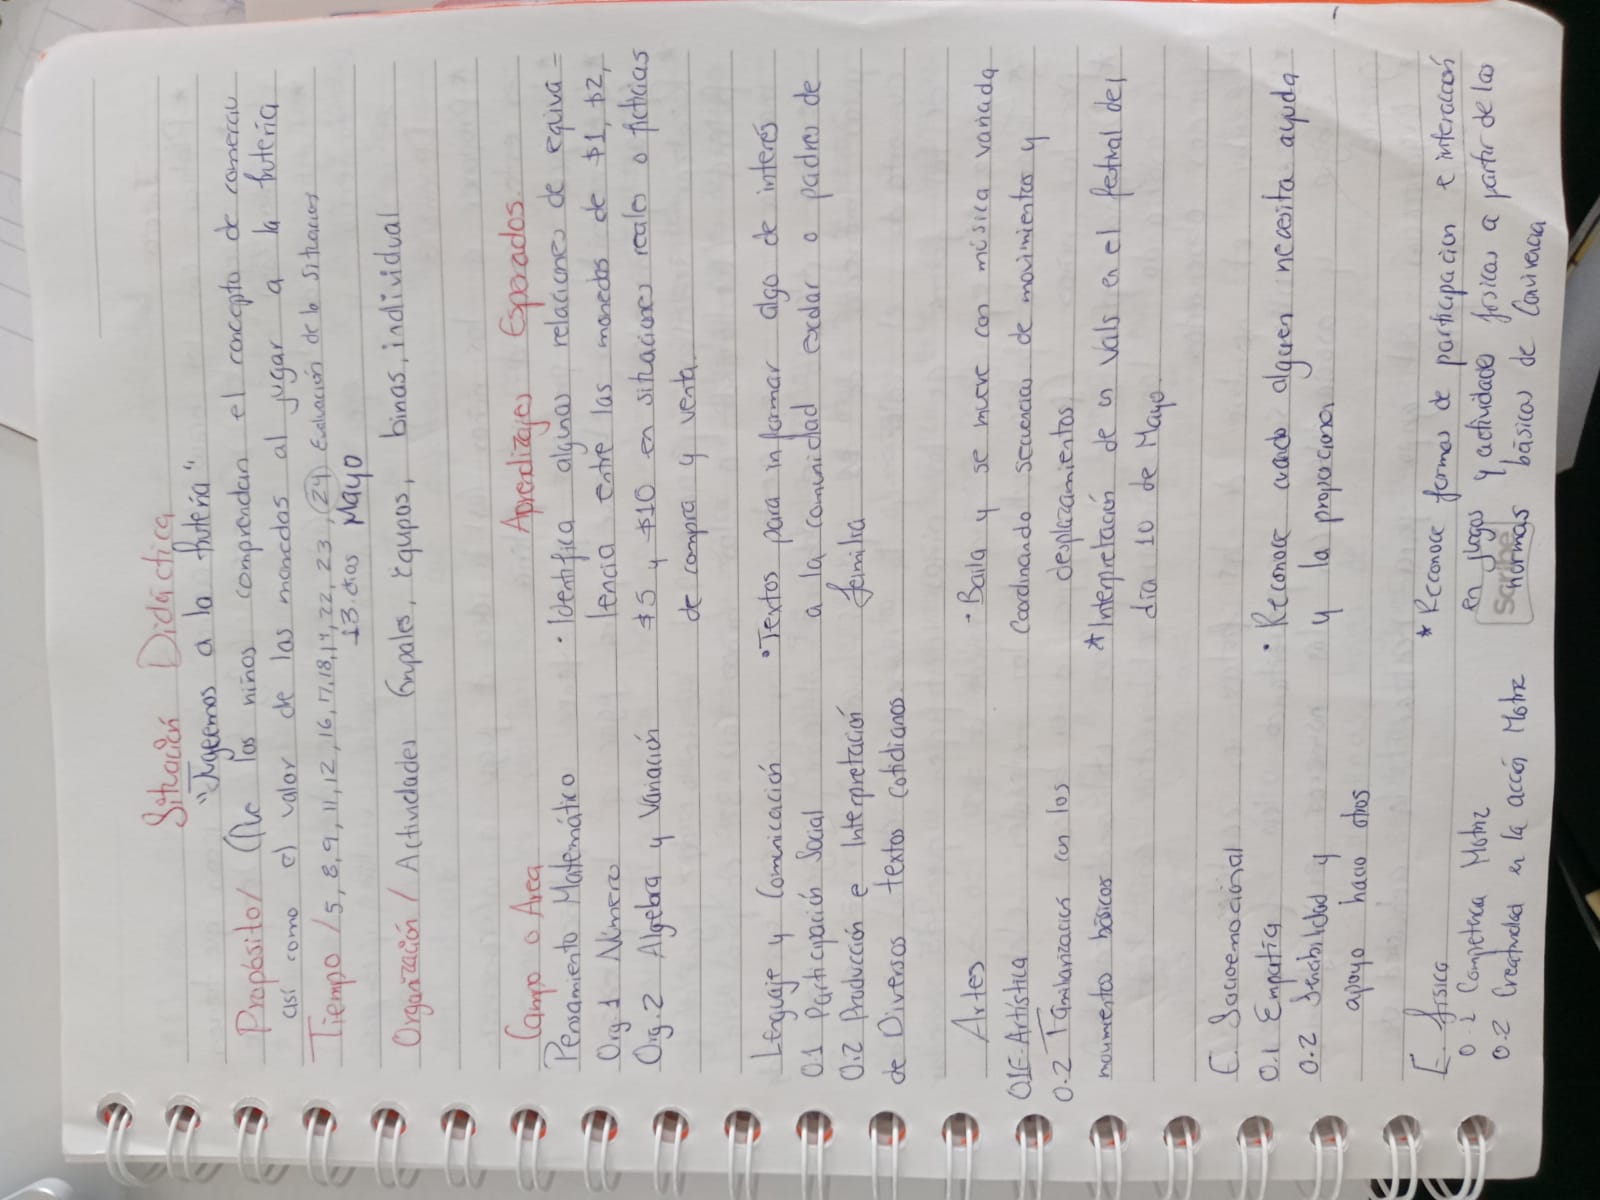 Situación Didáctica
"Juguemos a la frutería"
Propósito/ Que los niños comprendan el concepto de comercio
así como el valor de las monedas al jugar a la frutería
Tiempo / 5, 8, 9, 11, 12, 16, 17, 18, 19, 22, 23, 24 Evaluación de la situación
13 días Mayo
Organización / Actividades Grupales, equipos, binas, individual
Campo o Area Aprendizajes Esperados
Pensamiento Matemático
Org. 1 Número
Org. 2 Algebra y Variación
• Identifica algunas relaciones de equiva-
lencia entre las monedas de $1, $2,
$5 y $10 en situaciones reales o ficticias
de compra y venta.
Lenguaje y Comunicación
O.1 Participación Social
O.2 Producción e Interpretación
de Diversos textos cotidianos
• Textos para informar algo de interés
a la comunidad escolar o padres de
familia
Artes
O1E. Artística
O.2 Familiarización con los
movimientos básicos
• Baila y se mueve con música variada
Coordinando secuencias de movimientos y
desplazamientos
* Interpretación de un vals en el festival del
día 10 de Mayo
E. Socioemocional
O.1 Empatía
O.2 Sensibilidad y
apoyo hacia otros
• Reconoce cuando alguien necesita ayuda
y la proporciona
E. física
O.1 Competencia Motriz
O.2 Creatividad en la acción Motriz
* Reconoce formas de participacion e interacción
en juegos y actividades físicas a partir de las
normas básicas de Convivencia
Scribe